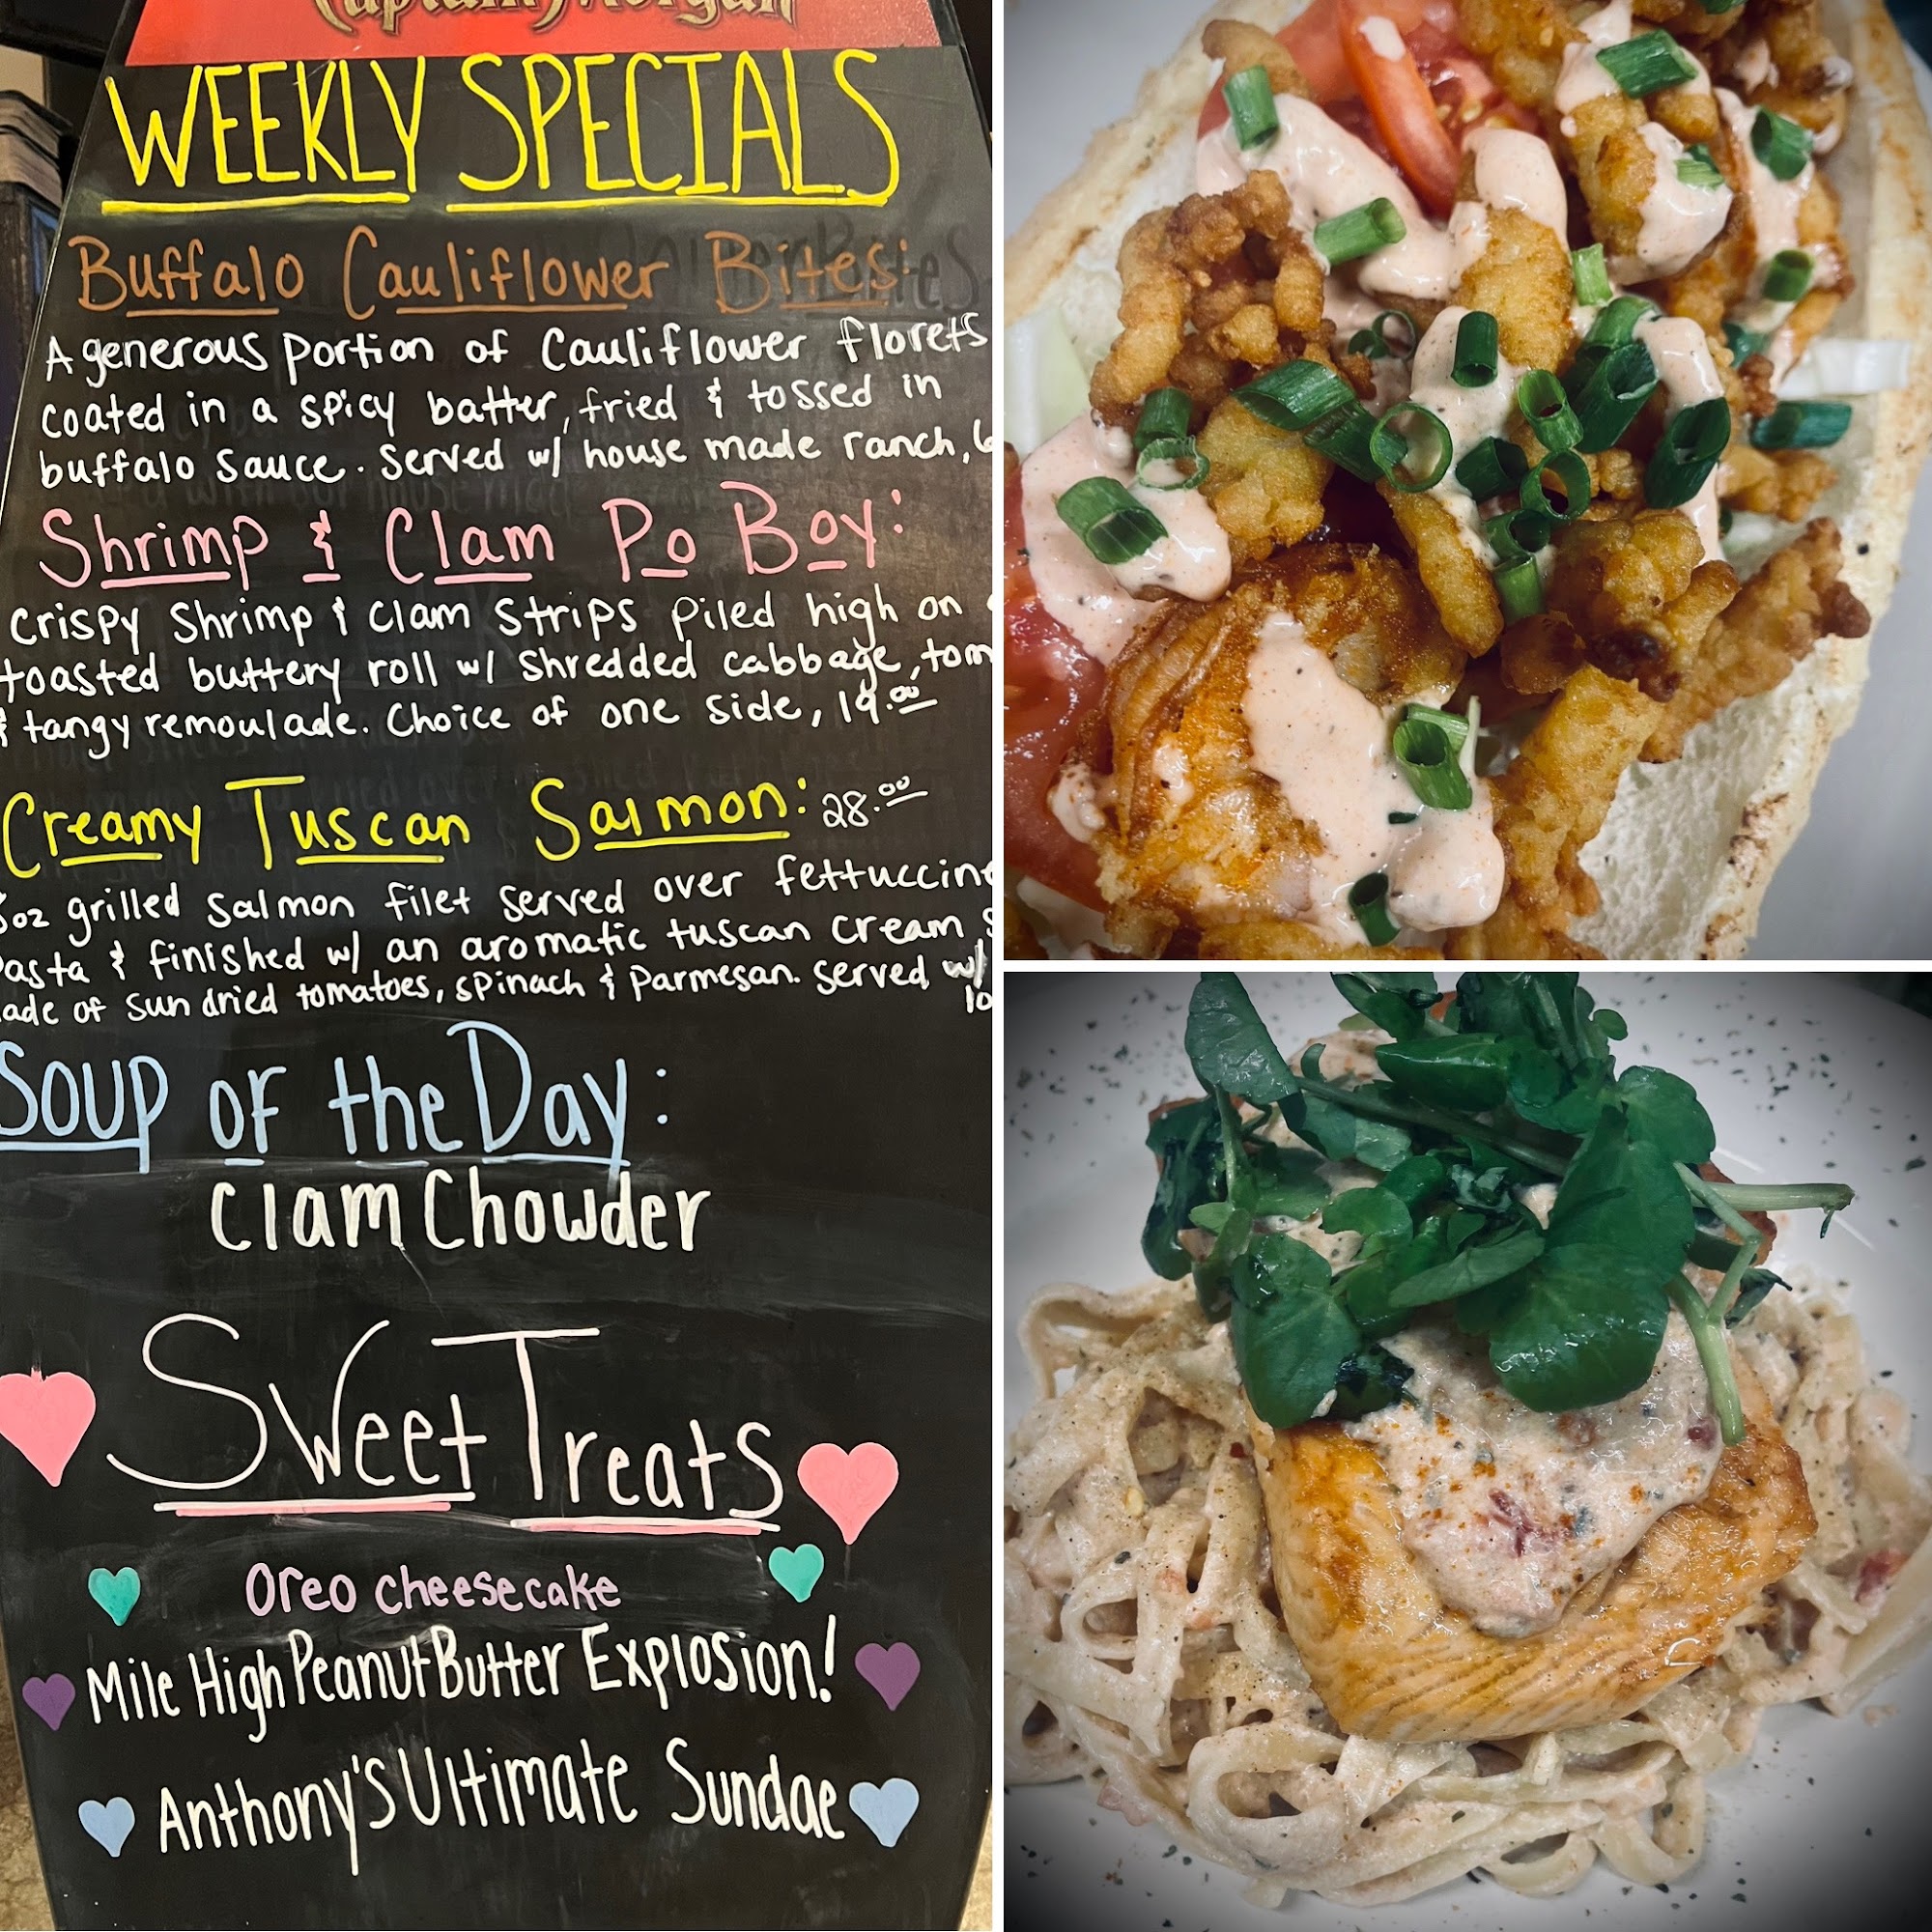 Captain Morgan
WEEKLY SPECIALS
Buffalo Cauliflower Bites:
A generous portion of Cauliflower florets
coated in a spicy batter, fried & tossed in
buffalo sauce. Served w/ house made ranch,
Shrimp & Clam Po Boy:
Crispy Shrimp & Clam Strips piled high on
toasted buttery roll w/ Shredded cabbage, tom
& tangy remoulade. Choice of one side, 19.00
Creamy Tuscan Salmon: 28.00
oz grilled salmon filet served over fettuccine
asta & finished w/ an aromatic tuscan cream s
ade of sun dried tomatoes, spinach & parmesan. Served w/
Soup of the Day:
Clam Chowder
Sweet Treats
Oreo cheesecake
Mile High Peanut Butter Explosion!
Anthony's Ultimate Sundae